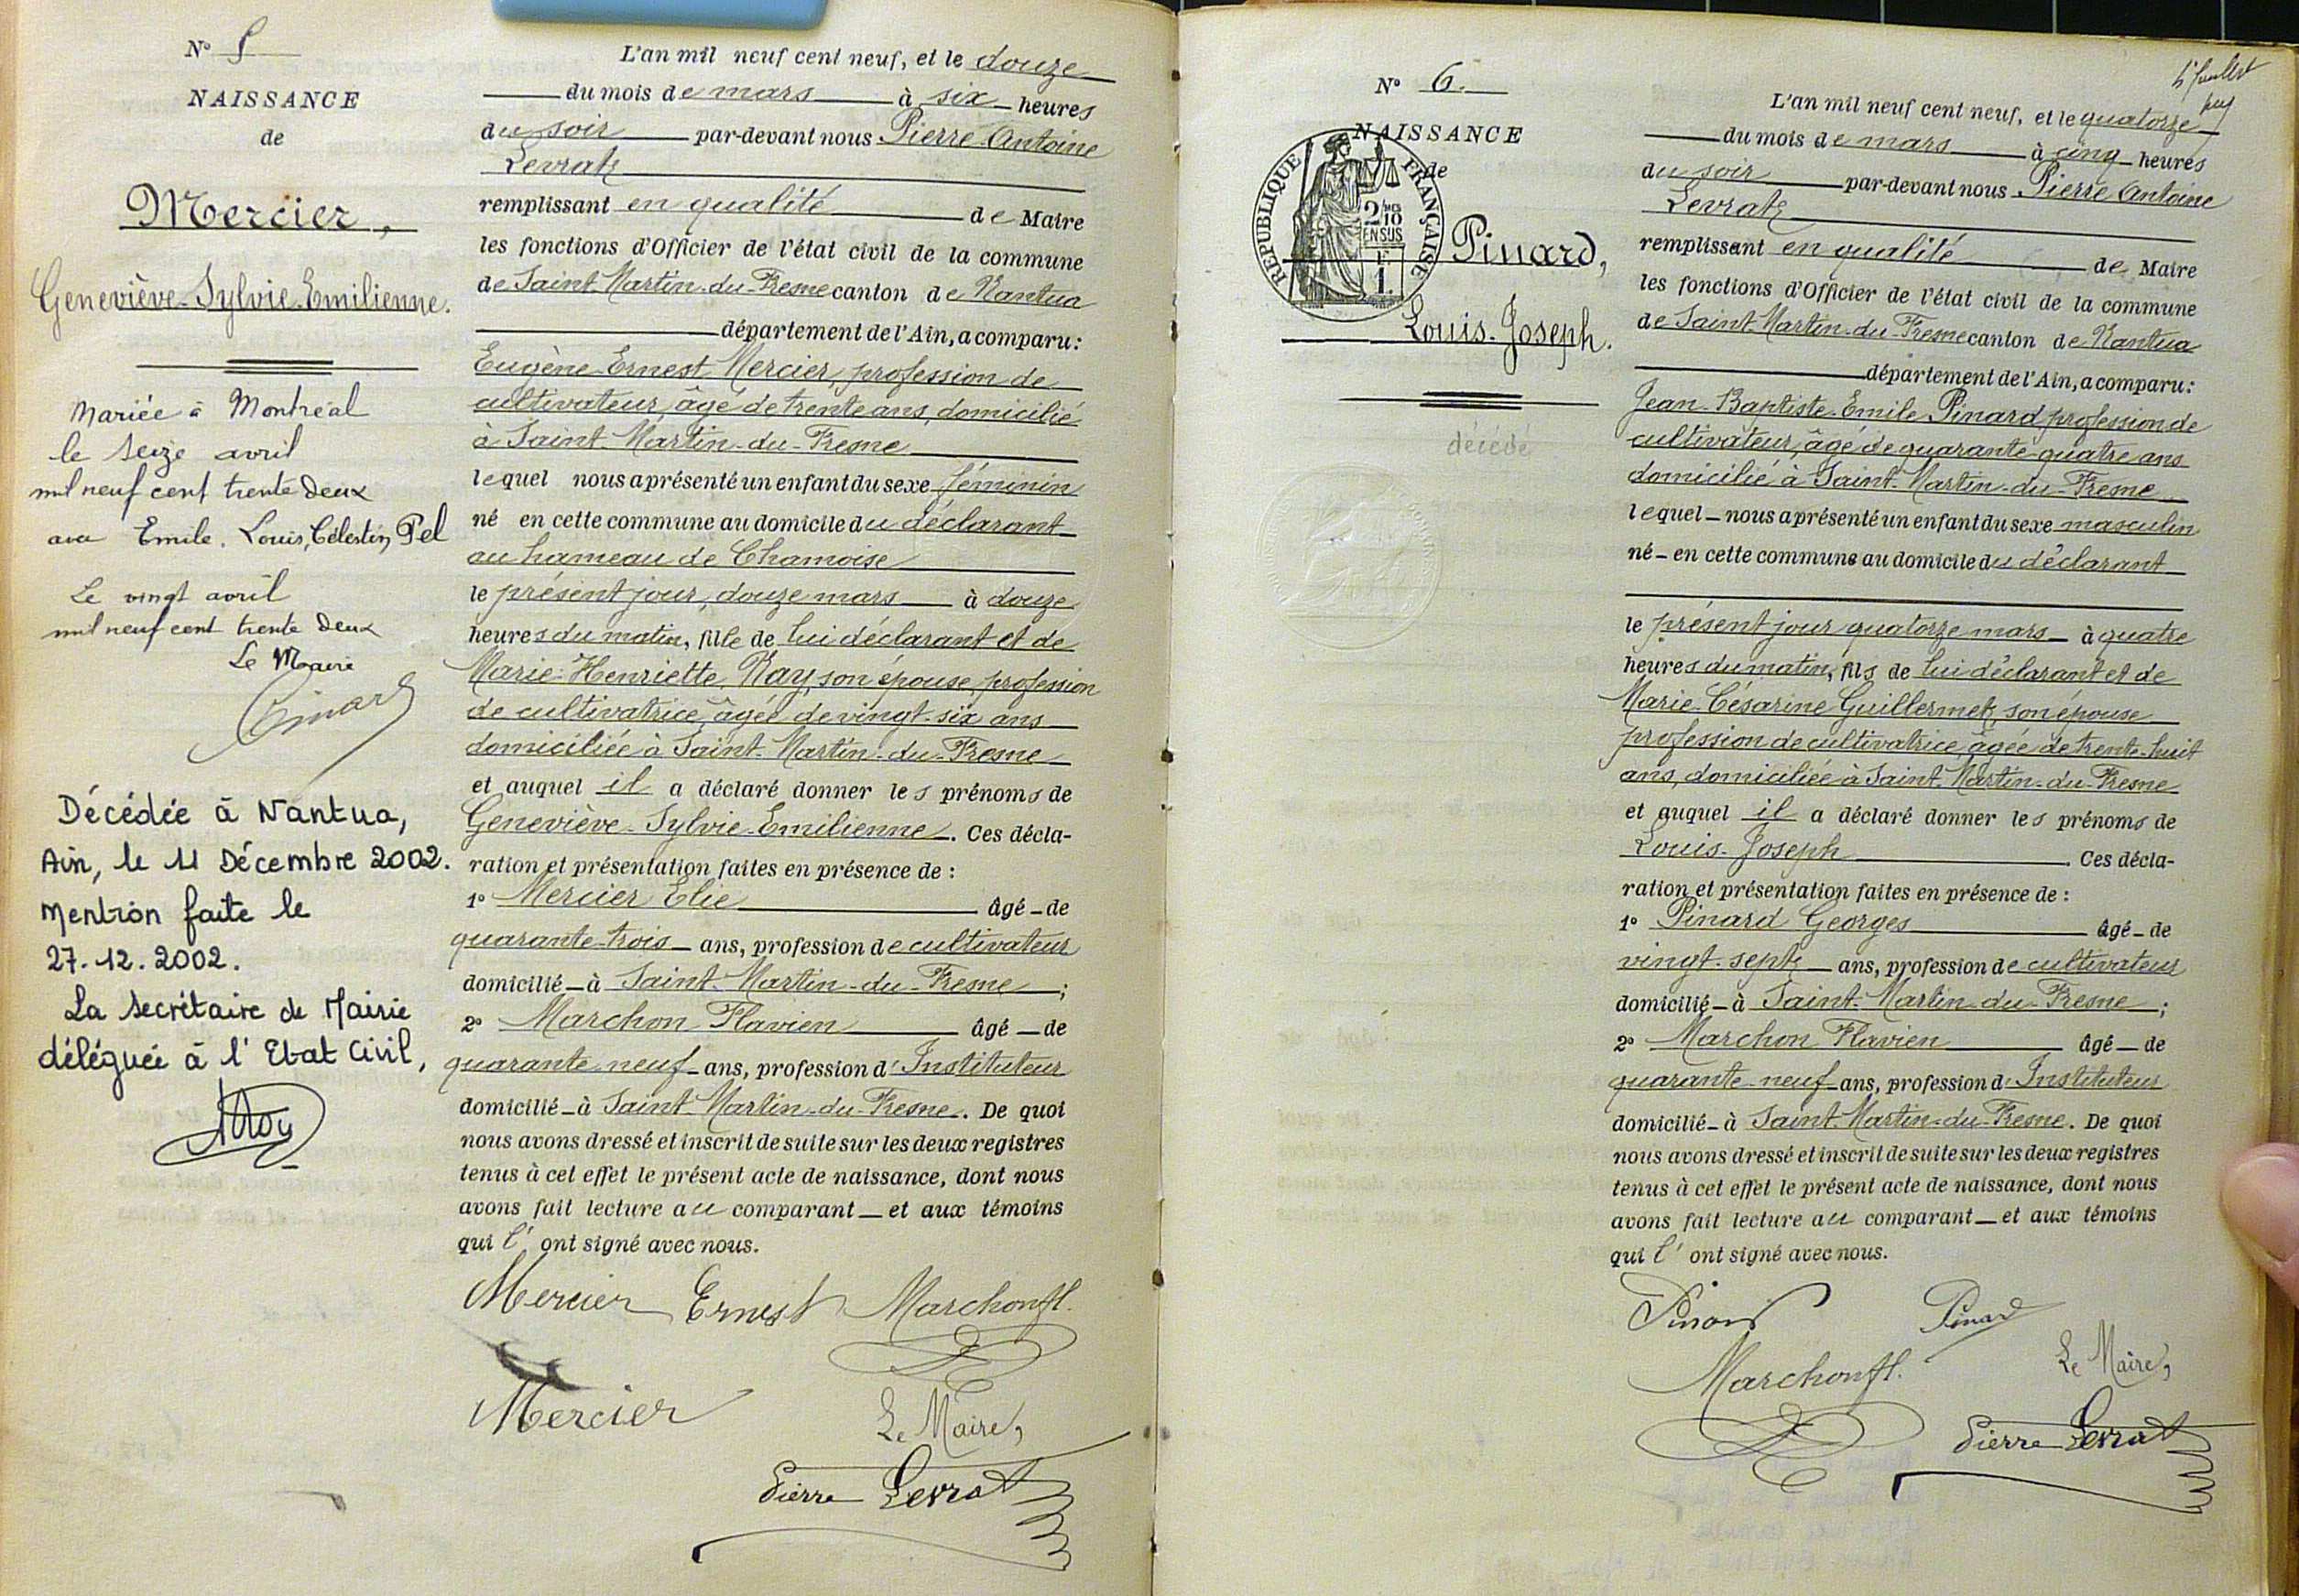 N° 5
NAISSANCE
de
Mercier,
Geneviève Sylvie Emilienne.
Mariée à Montréal
le seize avril
mil neuf cent trente deux
avec Emile, Louis, Célestin, Pel
Le vingt avril
mil neuf cent trente deux
Le Maire
Pinard
Décédée à Nantua,
Ain, le 11 Décembre 2002.
Mention faite le
27.12.2002.
La secrétaire de Mairie
déléguée à l'Etat Civil,
L'an mil neuf cent neuf, et le douze
du mois de mars à six heures
du soir par-devant nous Pierre Antoine
Levrat
remplissant en qualité de Maire
les fonctions d'Officier de l'état civil de la commune
de Saint-Martin-du-Fresne canton de Nantua
département de l'Ain, a comparu:
Eugène Ernest Mercier, profession de
cultivateur, âgé de trente ans, domicilié
à Saint-Martin-du-Fresne
lequel nous a présenté un enfant du sexe féminin
né en cette commune au domicile du déclarant
au hameau de Chamoise
le présent jour, douze mars à douze
heures du matin, fille de lui déclarant et de
Marie-Henriette Ray, son épouse, profession
de cultivatrice, âgée de vingt-six ans
domiciliée à Saint-Martin-du-Fresne
et auquel il a déclaré donner les prénoms de
Geneviève-Sylvie-Emilienne. Ces décla-
ration et présentation faites en présence de :
1° Mercier Elie âgé - de
quarante-trois ans, profession de cultivateur
domicilié - à Saint-Martin-du-Fresne ;
2° Marchon Flavien âgé - de
quarante-neuf ans, profession d'Instituteur
domicilié - à Saint-Martin-du-Fresne. De quoi
nous avons dressé et inscrit de suite sur les deux registres
tenus à cet effet le présent acte de naissance, dont nous
avons fait lecture au comparant - et aux témoins
qui l'ont signé avec nous.
Mercier Ernest Marchon fl.
Mercier
Le Maire,
Pierre Levrat
N° 6.
NAISSANCE
de
REPUBLIQUE FRANÇAISE
2/10MES
EN SUS
F.
1.
Pinard,
Louis-Joseph.
décédé
L'an mil neuf cent neuf, et le quatorze
du mois de mars à cinq heures
du soir par-devant nous Pierre Antoine
Levrat
remplissant en qualité de Maire
les fonctions d'Officier de l'état civil de la commune
de Saint-Martin-du-Fresne canton de Nantua
département de l'Ain, a comparu:
Jean-Baptiste-Emile Pinard profession de
cultivateur, âgé de quarante-quatre ans
domicilié à Saint-Martin-du-Fresne
lequel - nous a présenté un enfant du sexe masculin
né - en cette commune au domicile du déclarant
le présent jour quatorze mars - à quatre
heures du matin, fils de lui déclarant et de
Marie-Césarine Guillermet, son épouse
profession de cultivatrice âgée de trente-huit
ans, domiciliée à Saint-Martin-du-Fresne
et auquel il a déclaré donner les prénoms de
Louis-Joseph. Ces décla-
ration et présentation faites en présence de :
1° Pinard Georges âgé - de
vingt-sept - ans, profession de cultivateur
domicilié - à Saint-Martin-du-Fresne ;
2° Marchon Flavien âgé - de
quarante-neuf - ans, profession d'Instituteur
domicilié - à Saint-Martin-du-Fresne. De quoi
nous avons dressé et inscrit de suite sur les deux registres
tenus à cet effet le présent acte de naissance, dont nous
avons fait lecture au comparant - et aux témoins
qui l'ont signé avec nous.
Pinard Pinard
Marchon fl.
Le Maire,
Pierre Levrat